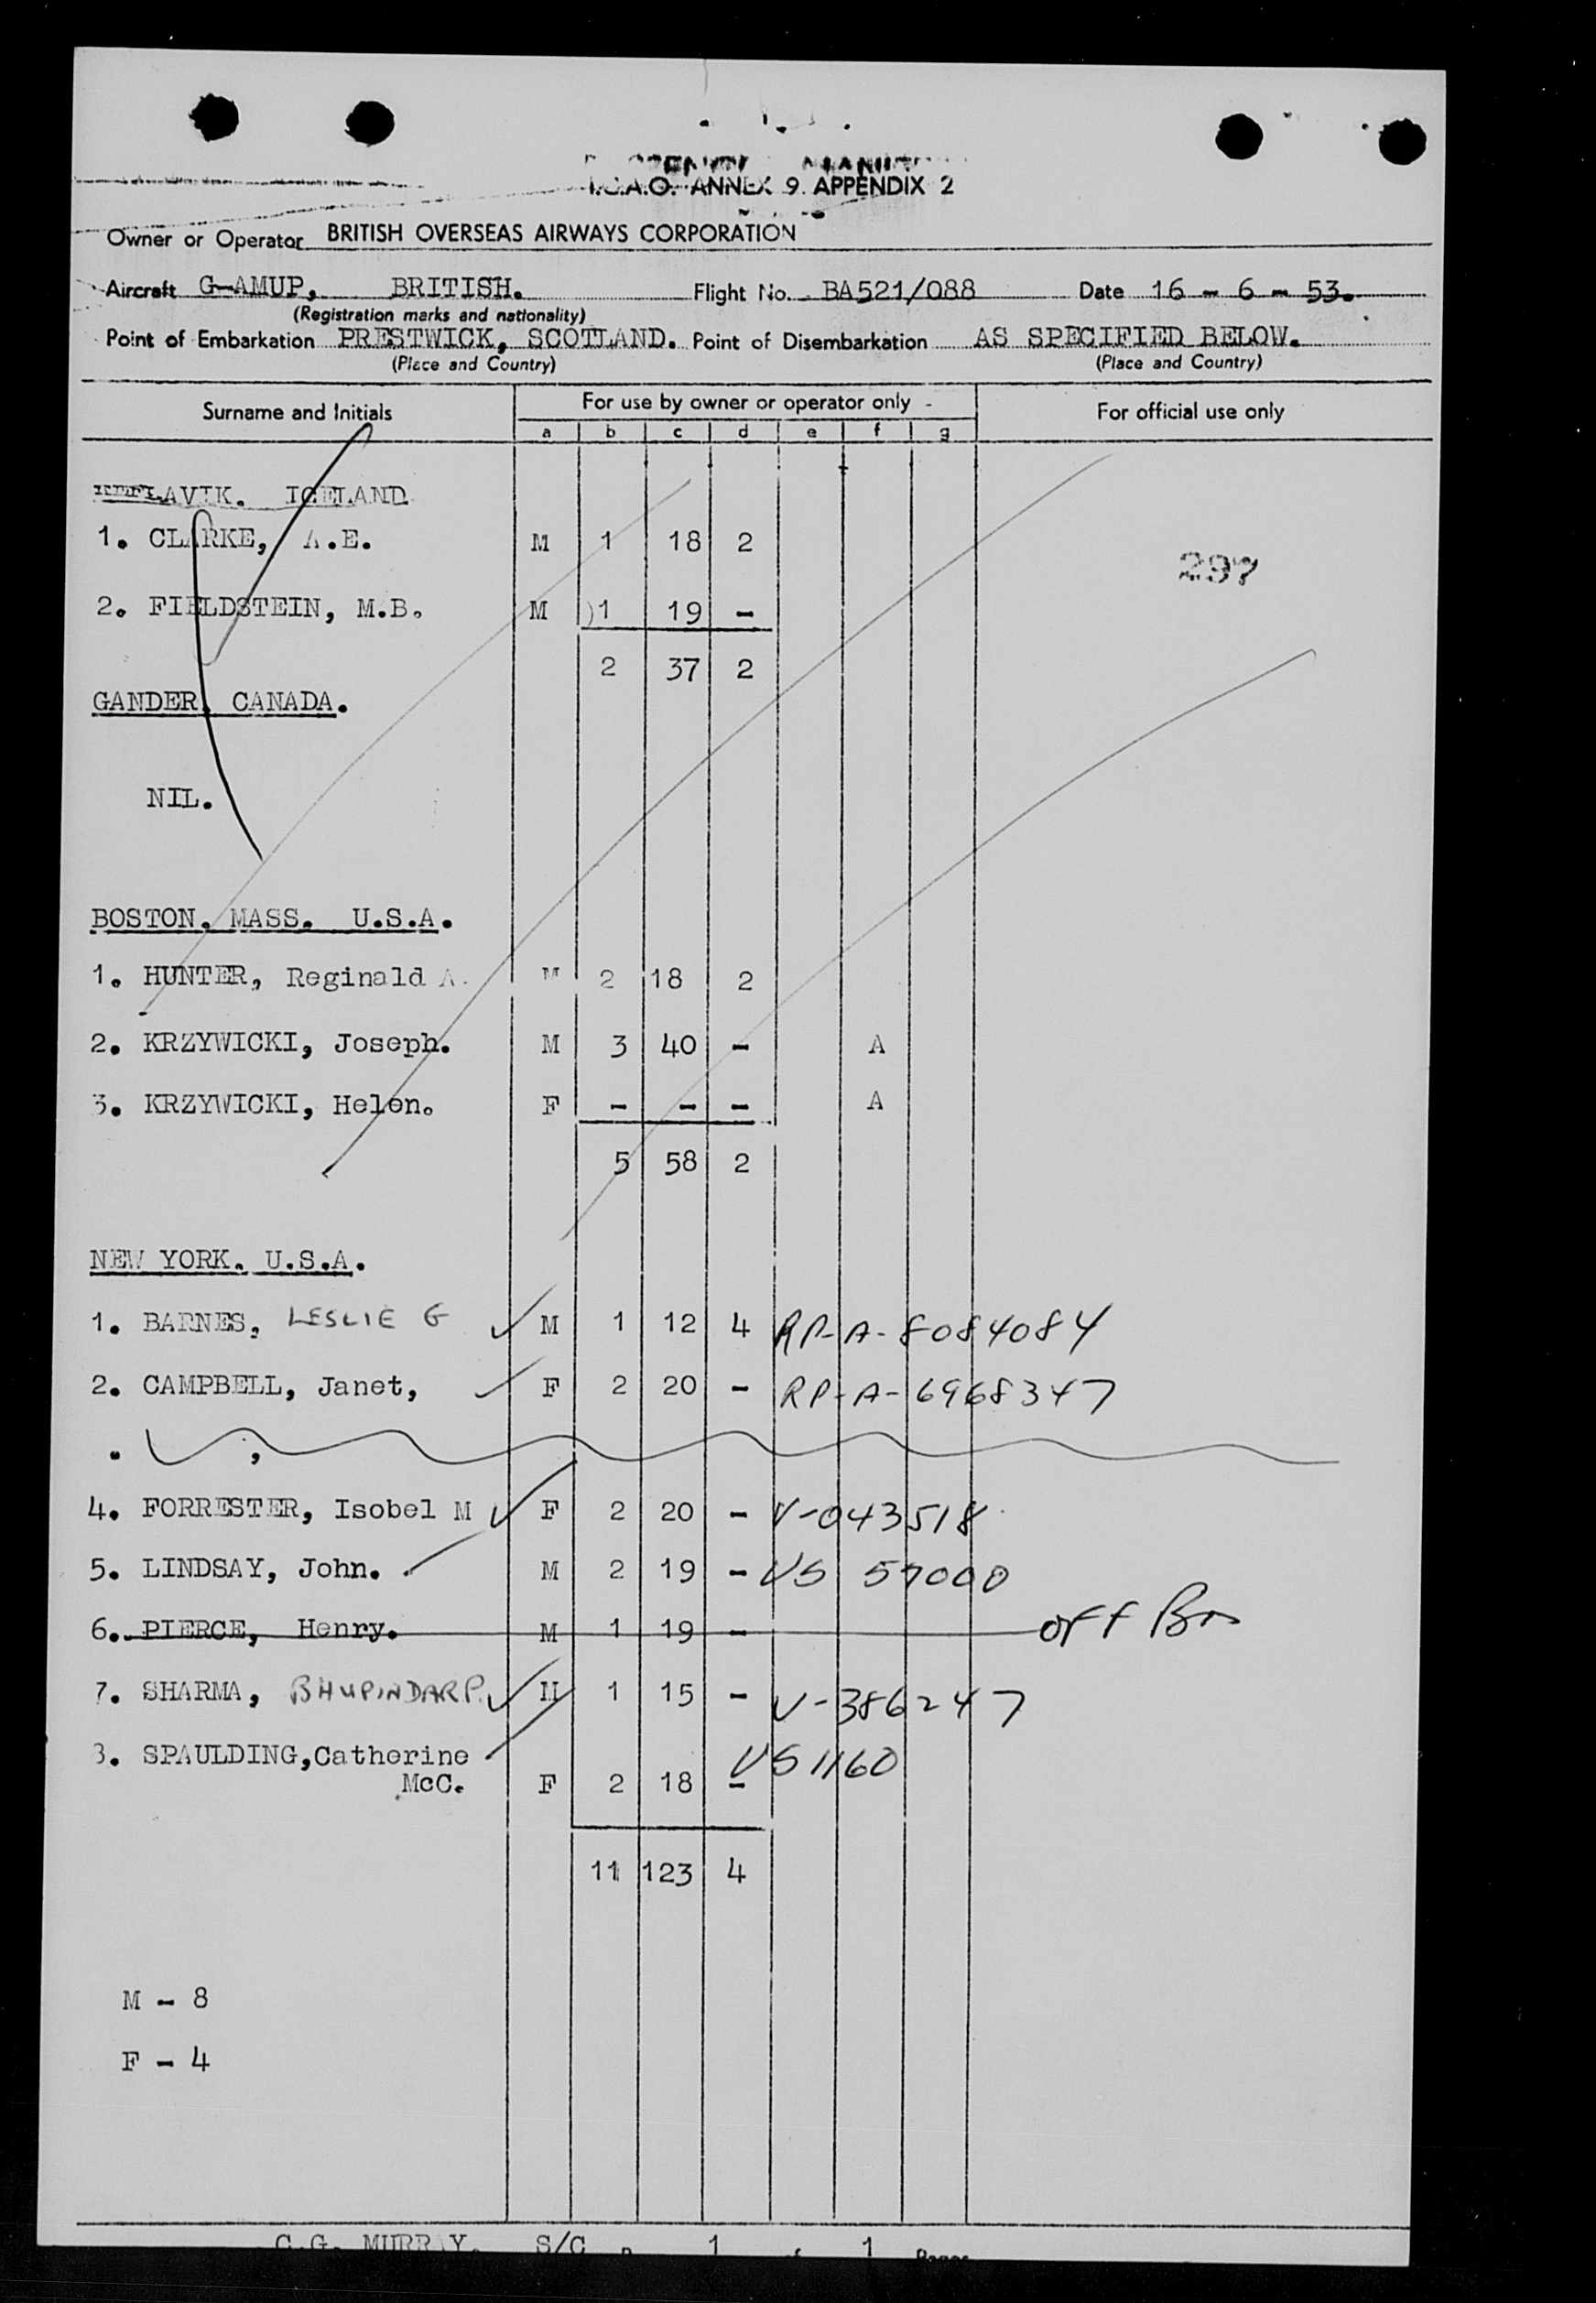 I.C.A.O. ANNEX 9. APPENDIX 2
Owner or Operator BRITISH OVERSEAS AIRWAYS CORPORATION
Aircraft G-AMUP, BRITISH. Flight No. BA521/088 Date 16 - 6 - 53.
(Registration marks and nationality)
Point of Embarkation PRESTWICK, SCOTLAND. Point of Disembarkation AS SPECIFIED BELOW.
(Place and Country) (Place and Country)
Surname and Initials For use by owner or operator only For official use only
a b c d e f g
KEFLAVIK. ICELAND
1. CLARKE, A.E. M 1 18 2
297
2. FIELDSTEIN, M.B. M 1 19 -
2 37 2
GANDER, CANADA.
NIL.
BOSTON. MASS. U.S.A.
1. HUNTER, Reginald A. M 2 18 2
2. KRZYWICKI, Joseph. M 3 40 - A
3. KRZYWICKI, Helen. F - - - A
5 58 2
NEW YORK. U.S.A.
1. BARNES, LESLIE G M 1 12 4 RP-A-8084084
2. CAMPBELL, Janet, F 2 20 - RP-A-6968347
. ,
4. FORRESTER, Isobel M F 2 20 - V-043518
5. LINDSAY, John. M 2 19 - VS 57000
6. PIERCE, Henry. M 1 19 - OFF
7. SHARMA, BHUPINDAR P. M 1 15 - V-386247
8. SPAULDING, Catherine VS 1160
McC. F 2 18 -
11 123 4
M - 8
F - 4
C.G. MURRAY. S/C 1 of 1 Pages